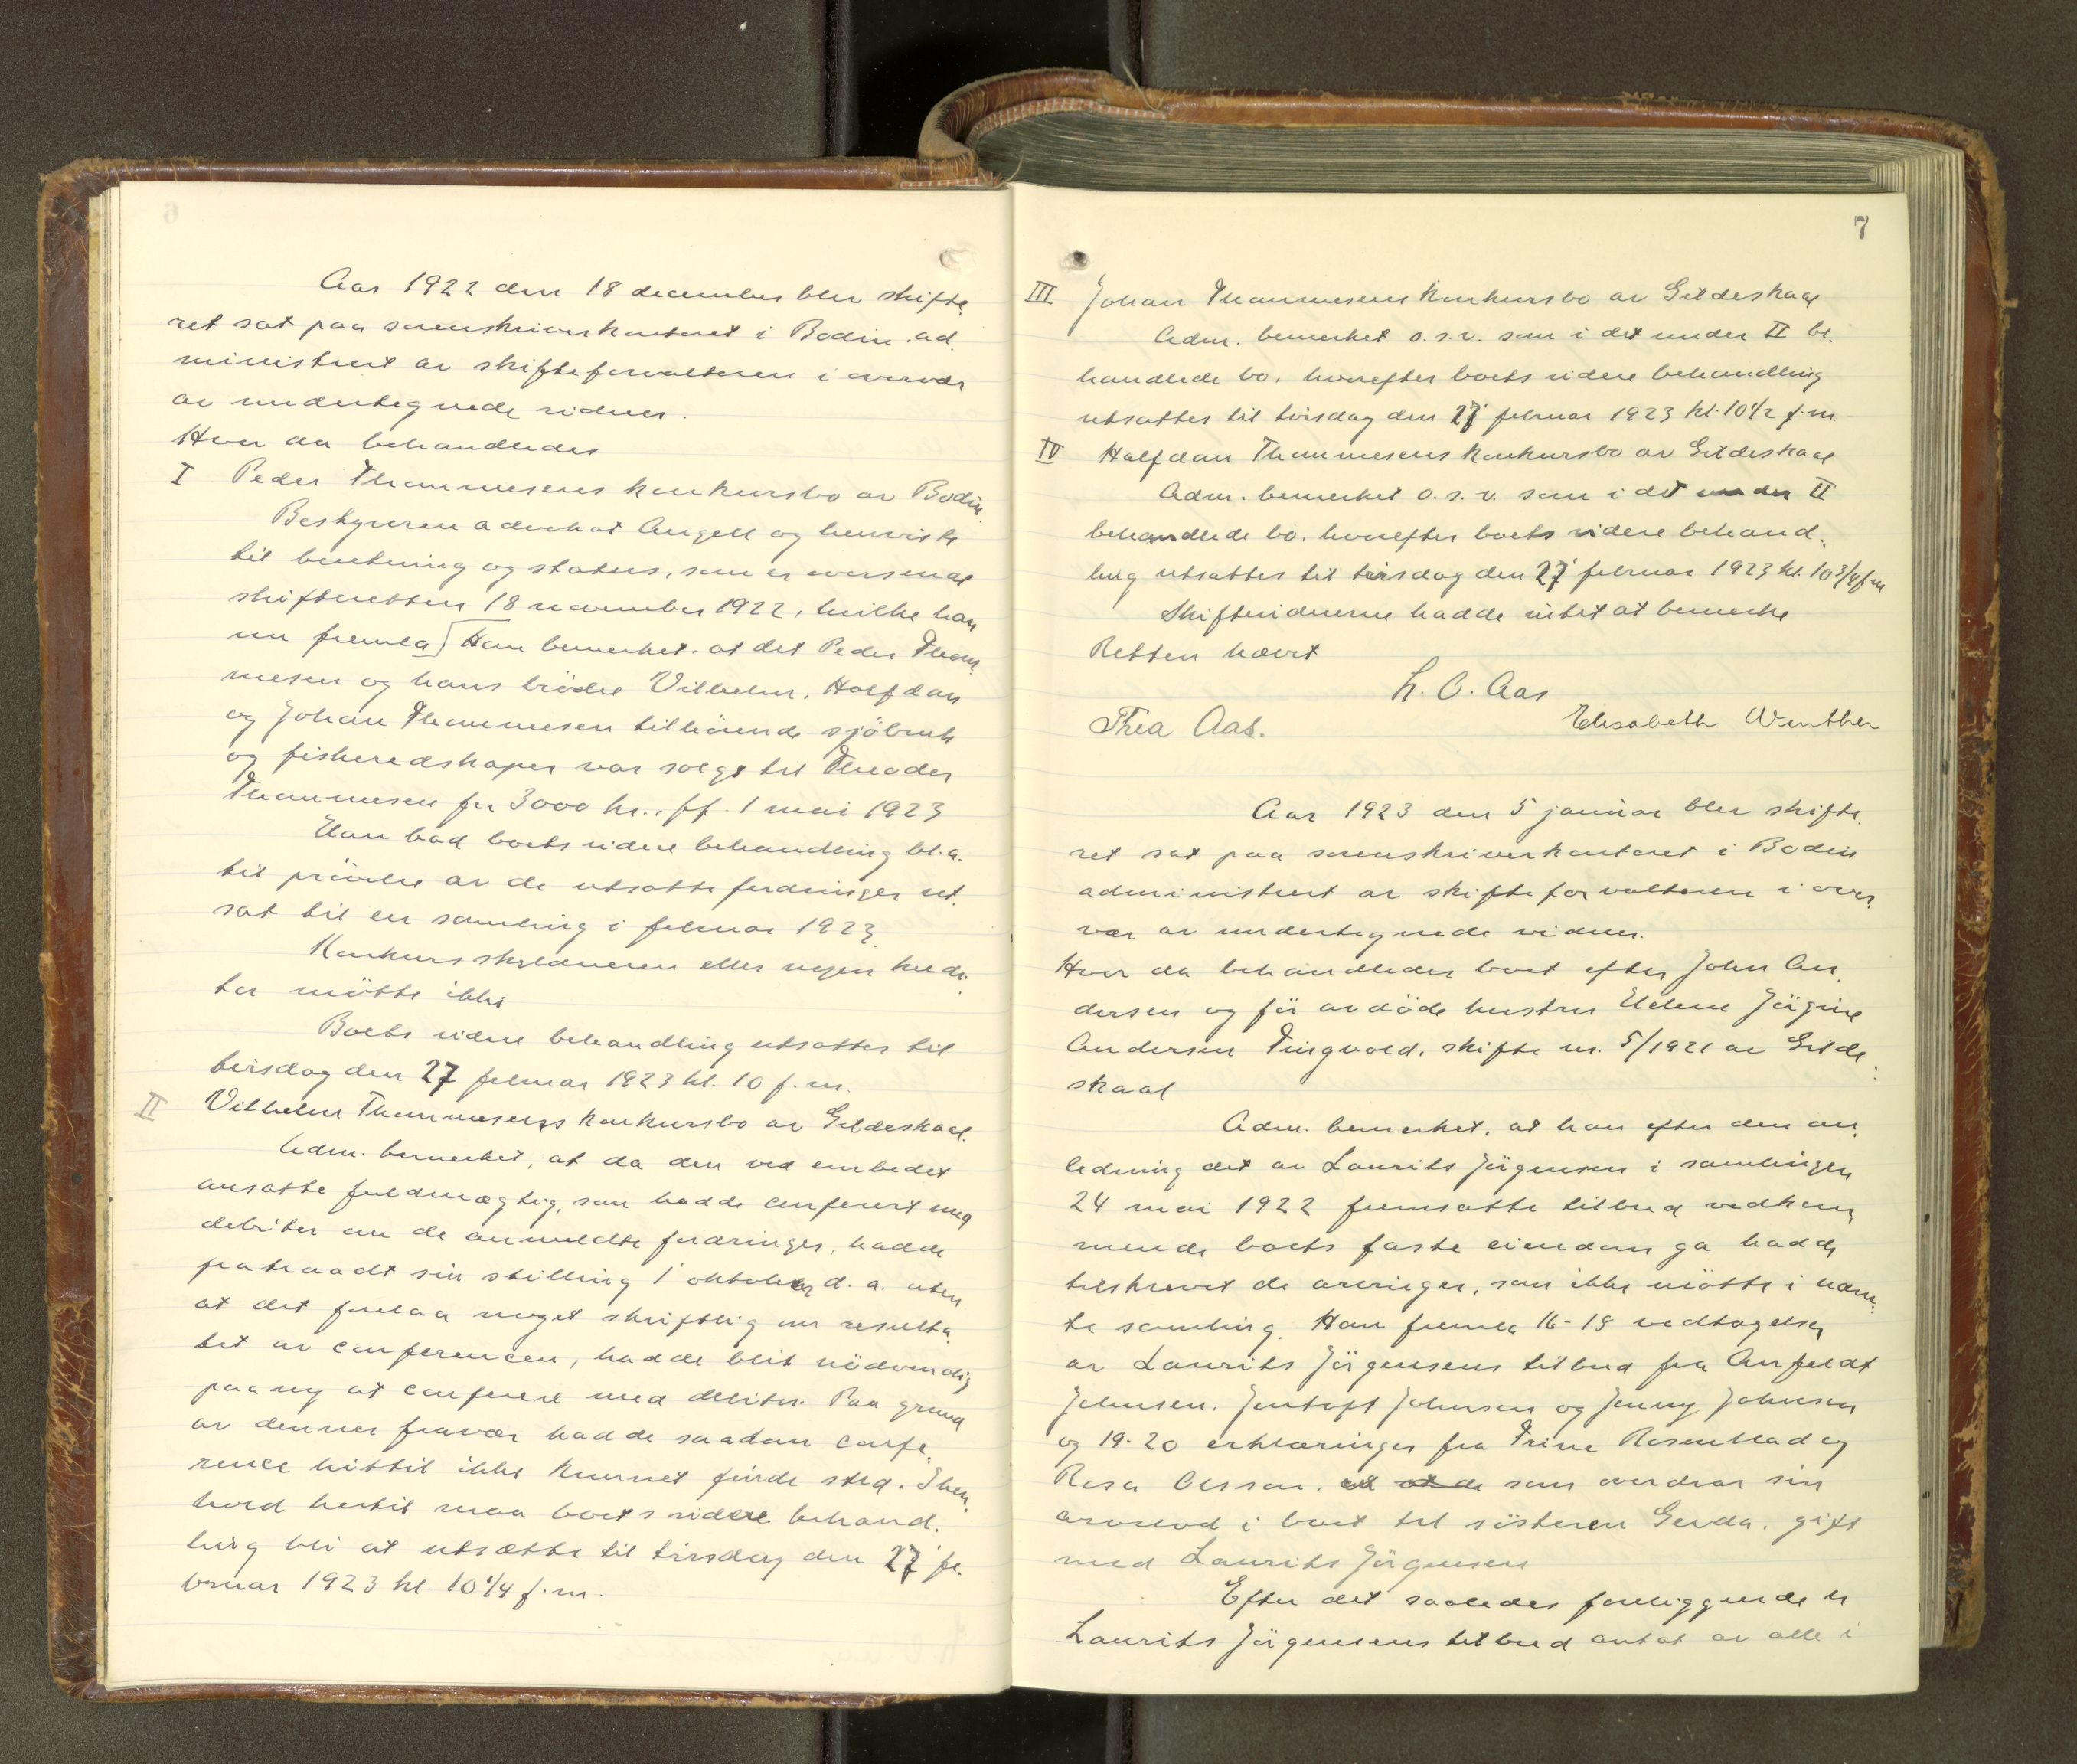 Aar 1922 den 18 december blev skifte-
ret sat paa sorenskriverkontoret i Bodin ad-
ministrert av skifteforvalteren i overvær
av undertegnede vidner.
Hvor da behandledes
I Peder Thommesens konkursbo av Bodin.
Bestyreren advokat Angell og henviste
til beretning og status, som er oversendt
skifteretten 18 november 1922, hvilke han
nu fremla. Han bemerket at det Peder Thom-
mesen og hans brödre Vilhelm, Halfdan
og Johan Thommesen tilhörende sjöbruk
og fiskeredskaper var solgt til Theodor
Thommesen for 3000 kr., pf. 1 mai 1923
Han bad boets videre behandling bl.a.
til prövelse av de utsatte fordringer ut-
sat til en samling i februar 1923.
Konkursskyldneren eller nogen kredi-
tor mötte ikke
Boets videre behandling utsattes til
tirsdag den 27 februar 1923 kl. 10 f.m.
II Vilhelm Thommesens konkursbo av Gildeskaal.
Adm. bemerket, at da den ved embedet
ansatte fuldmægtig, som hadde conferert med
debitor om de anmeldte fordringer, hadde
fratraadt sin stilling 1 oktober d.a. uten
at det forelaa noget skriftlig om resulta-
tet av conferencen, hadde blit nödvendig
paany at conferere med debitor. Paa grund
av dennes fravær hadde saadan confe-
rence hittil ikke kunnet finde sted. I hen-
hold hertil maa boets videre behand-
ling bli at utsætte til tirsdag den 27 fe-
bruar 1923 kl. 10 1/4 f.m.
7
III Johan Thommesens konkursbo av Gildeskaal
Adm. bemerket o.s.v. som i det under II be-
handlede bo. hvorefter boets videre behandling
utsattes til tirsdag den 27 februar 1923 kl. 10 1/2 f.m.
IV Halfdan Thommesens konkursbo av Gildeskaal
Adm. bemerket o.s.v. som i det under II
behandlede bo. hvorefter boets videre behand-
ling utsattes til tirsdag den 27 februar 1923 kl. 10 3/4 f.m
Skiftevidnerne hadde intet at bemerke
Retten hævet
L. O. Aas
Thea Aas. Elisabeth Winther
Aar 1923 den 5 januar blev skifte-
ret sat paa sorenskriverkontoret i Bodin
administrert av skifteforvalteren i over-
vær av undertegnede vidner.
Hvor da behandledes boet efter John An-
dersen og för avdöde hustru Elene Jörgine
Andersen Tingvold, skifte nr. 5/1921 av Gilde-
skaal
Adm. bemerket, at han efter den an-
ledning det av Laurits Jörgensen i samlingen
24 mai 1922 fremsatte tilbud vedkom-
mende boets faste eiendom ga hadde
tilskrevet de arvinger, som ikke mötte i nævn-
te samling. Han fremla 16-18 vedtagelser
av Laurits Jörgensens tilbud fra Anfeldt
Johnsen, Jentoft Johnsen og Jenny Johnsen
og 19-20 erklæringer fra Trine Rosenblad og
Rosa Olsson, som overdrar sin
arvelod i boet til sösteren Gerda, gift
med Laurits Jörgensen
Efter det saaledes foreliggende er
Laurits Jörgensens tilbud antat av alle i